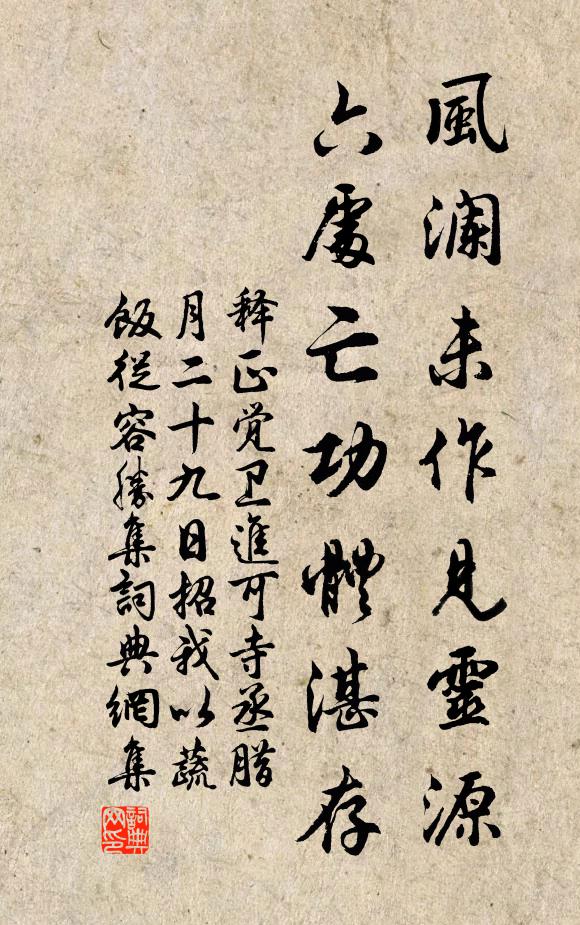 風澜未作見靈源
六處亡功體湛存
释正覚卫進可寺丞腊
月二十九日招我以蔬
飯從容勝集詞典網集
詞典网印